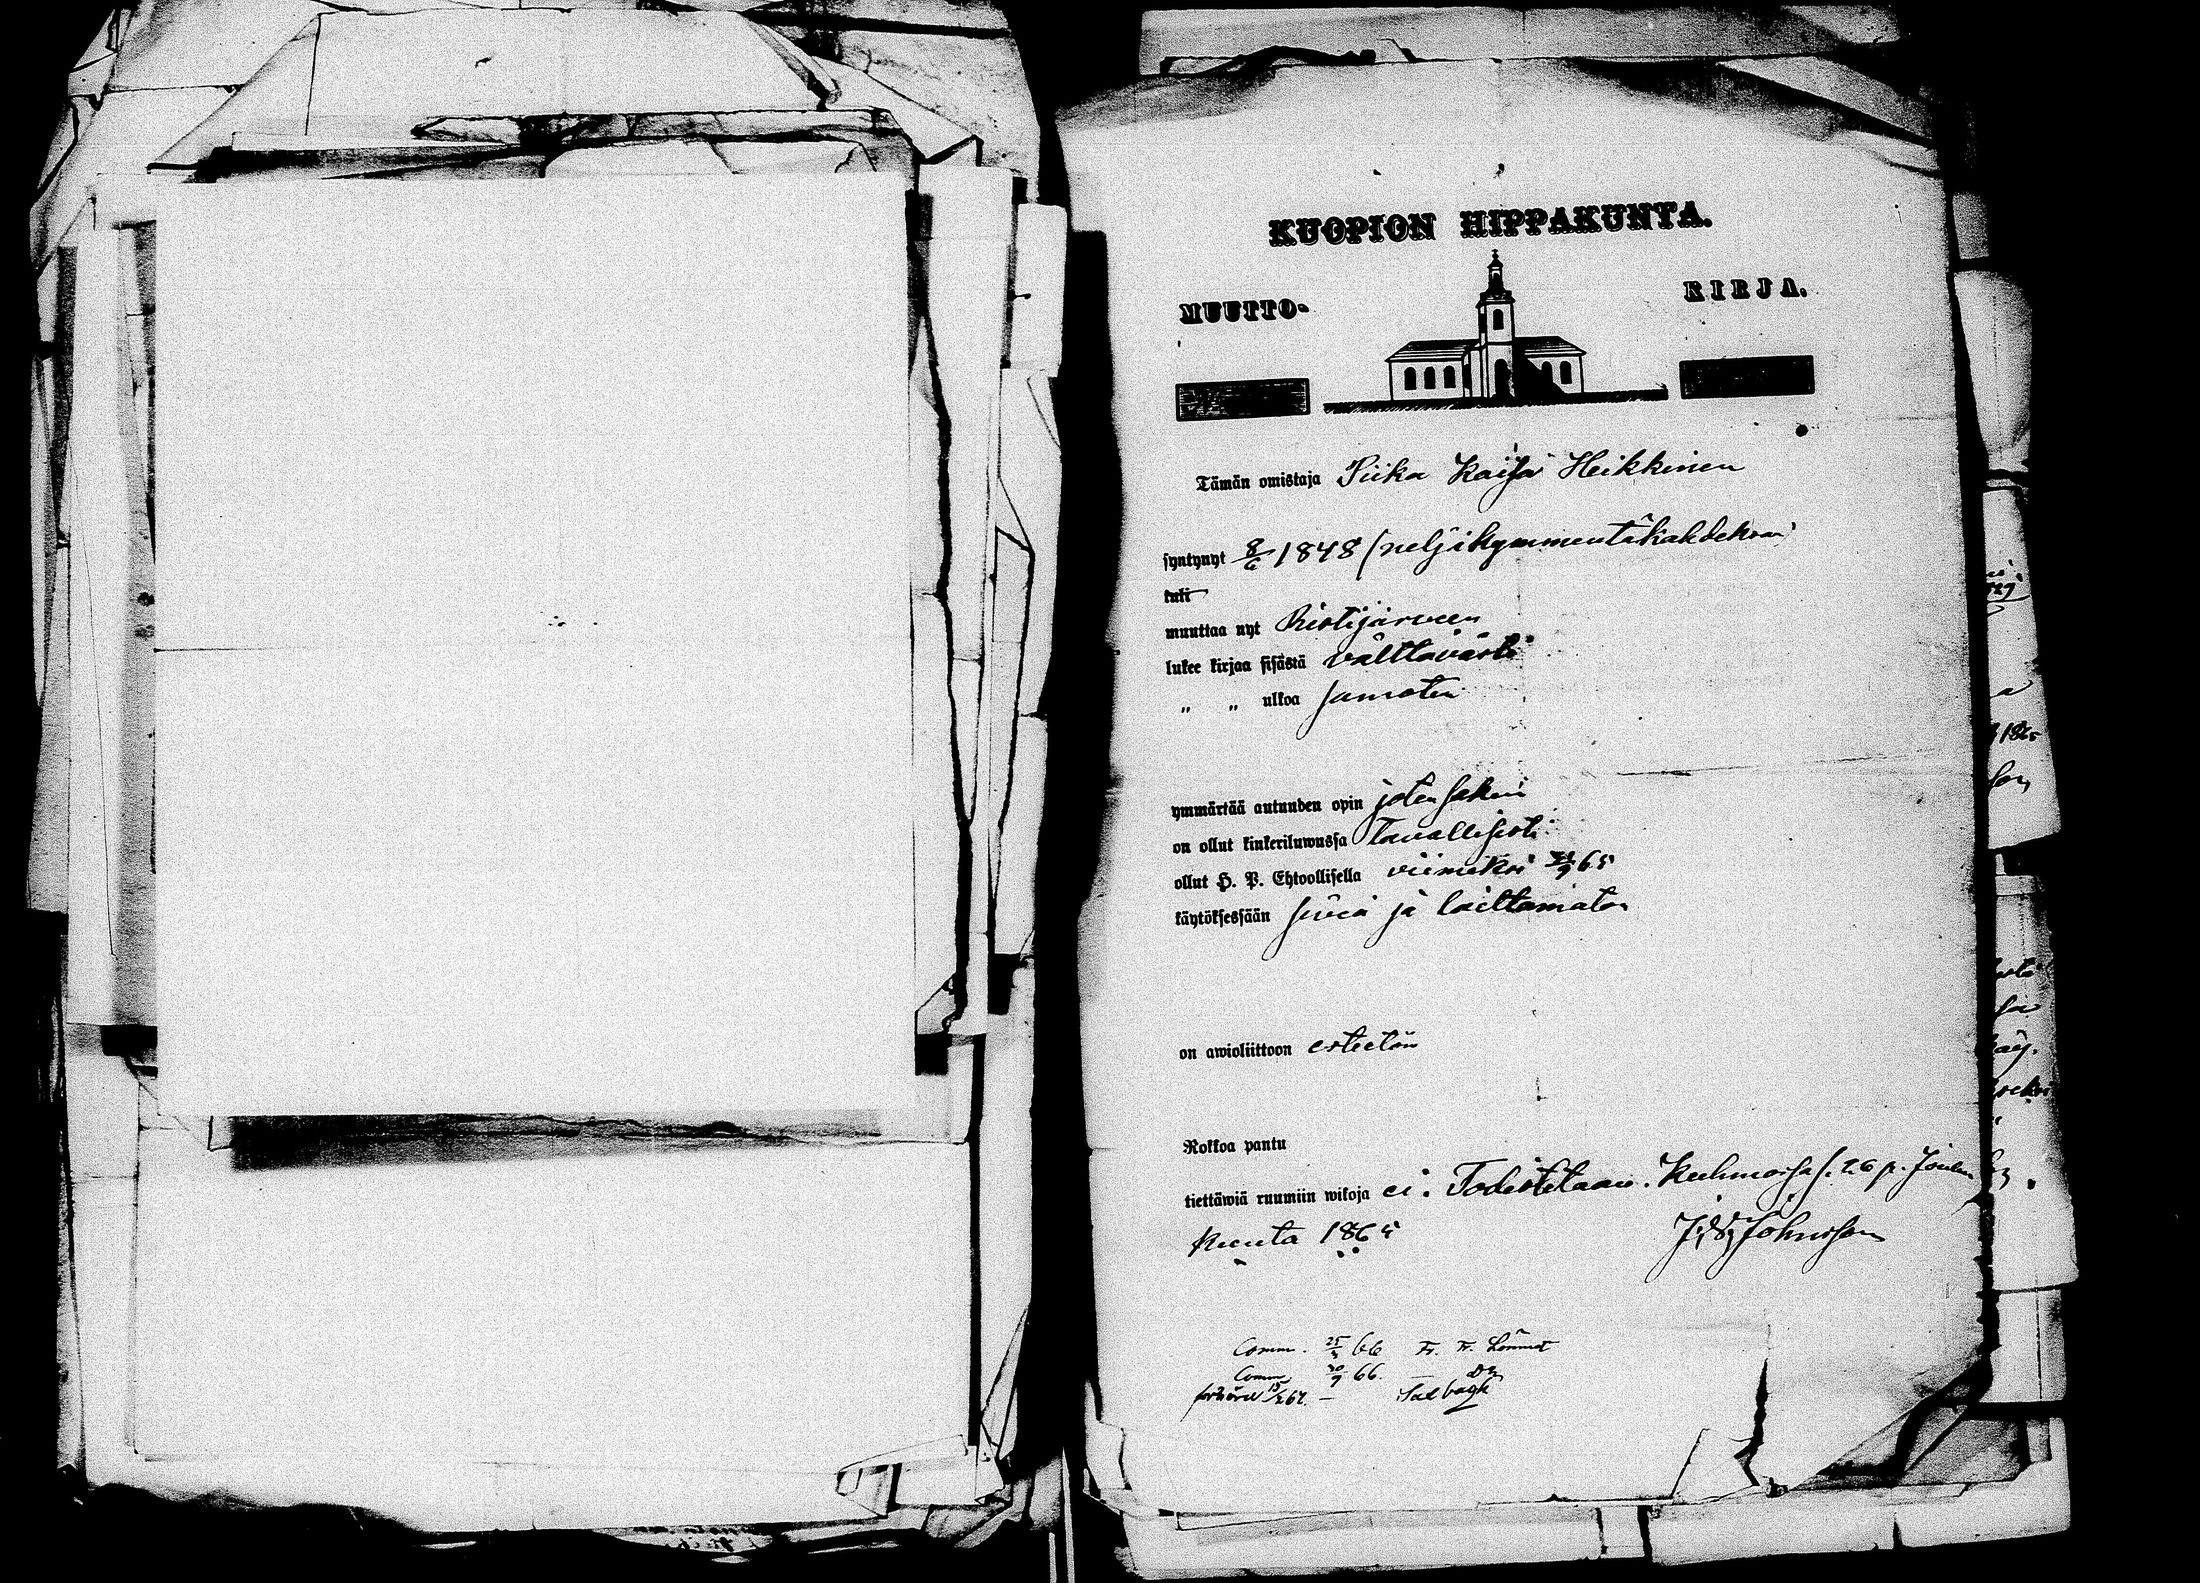 KUOPION HIPPAKUNTA.
MUUTTO- KIRJA.
Tämän omistaja Piika Kaisa Heikkinen
syntynyt 8/6 1848 (neljäkymmentäkahdeksan)
tuli
muuttaa nyt Ristijärveen
lukee kirjaa sisästä välttävästi
" " ulkoa samoten
ymmärtää autuuden opin jotensakin
on ollut kinkeriluwussa tavallisesti
ollut H. P. Ehtoollisella viimeksi /9 65
käytöksessään siviä ja laittamaton
on awioliittoon esteetön
Rokkoa pantu
tiettäwiä ruumiin wikoja ei. Todistetaan. Kuhmoissa s. 26 p. Joulu
kuuta 1865 Johnsson
Comm. 25/3 66 Fr. F. Lönnrot
Comm. 30/9 66. — Dn
förhörd 15/2 67. —